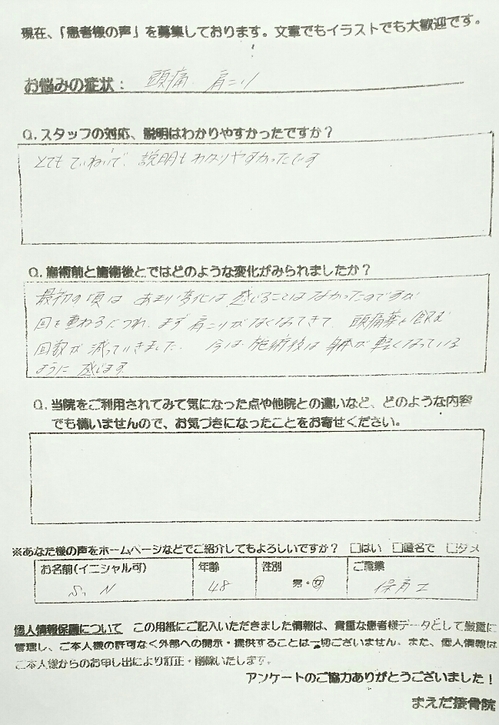 現在、「患者様の声」を募集しております。文章でもイラストでも大歓迎です。
お悩みの症状： 頭痛 肩こり
Q.スタッフの対応、説明はわかりやすかったですか？
とてもていねいで、説明もわかりやすかったです
Q.施術前と施術後とではどのような変化がみられましたか？
最初の頃は あまり変化は 感じることはなかったのですが
回を重ねるにつれ、まず肩こりがなくなってきて、頭痛薬を飲む
回数が減っていきました。 今は施術後は身体が軽くなっている
ように感じます
Q.当院をご利用されてみて気になった点や他院との違いなど、どのような内容
でも構いませんので、お気づきになったことをお寄せください。
※あなた様の声をホームページなどでご紹介してもよろしいですか？ □はい □匿名で □ダメ
お名前(イニシャル可) 年齢 性別 ご職業
S. N 48 男・女 保育士
個人情報保護について この用紙にご記入いただきました情報は、貴重な患者様データとして厳重に
管理し、ご本人様の許可なく外部への開示・提供することは一切ございません。また、個人情報は
ご本人様からのお申し出により訂正・削除いたします。
アンケートのご協力ありがとうございました！
まえだ接骨院